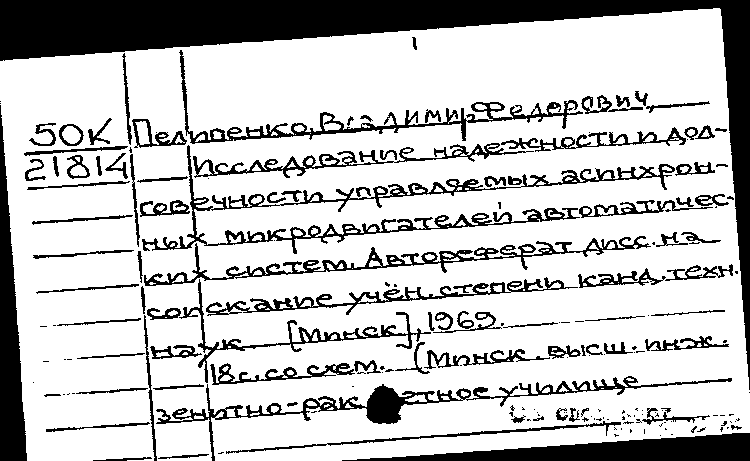 50К Пелипенко, Владимир Федорович,
21814 Исследование надежности и дол-
говечности управляемых асинхрон-
ных микродвигателей автоматичес-
ких систем. Автореферат дисс. на
соискание учён. степени канд. техн.
наук. [Минск], 1969.
18с. со схем. (Минск. высш. инж.
зенитно-рак етное училище